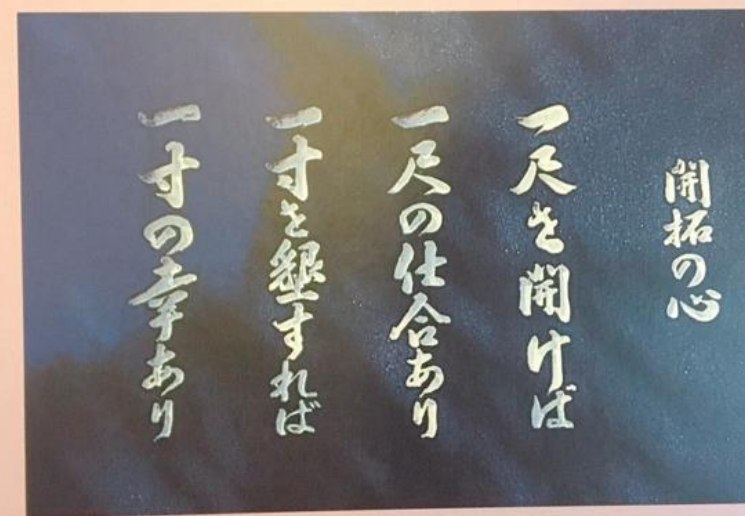 開拓の心
一尺を開けば
一尺の仕合あり
一寸を墾すれば
一寸の幸あり